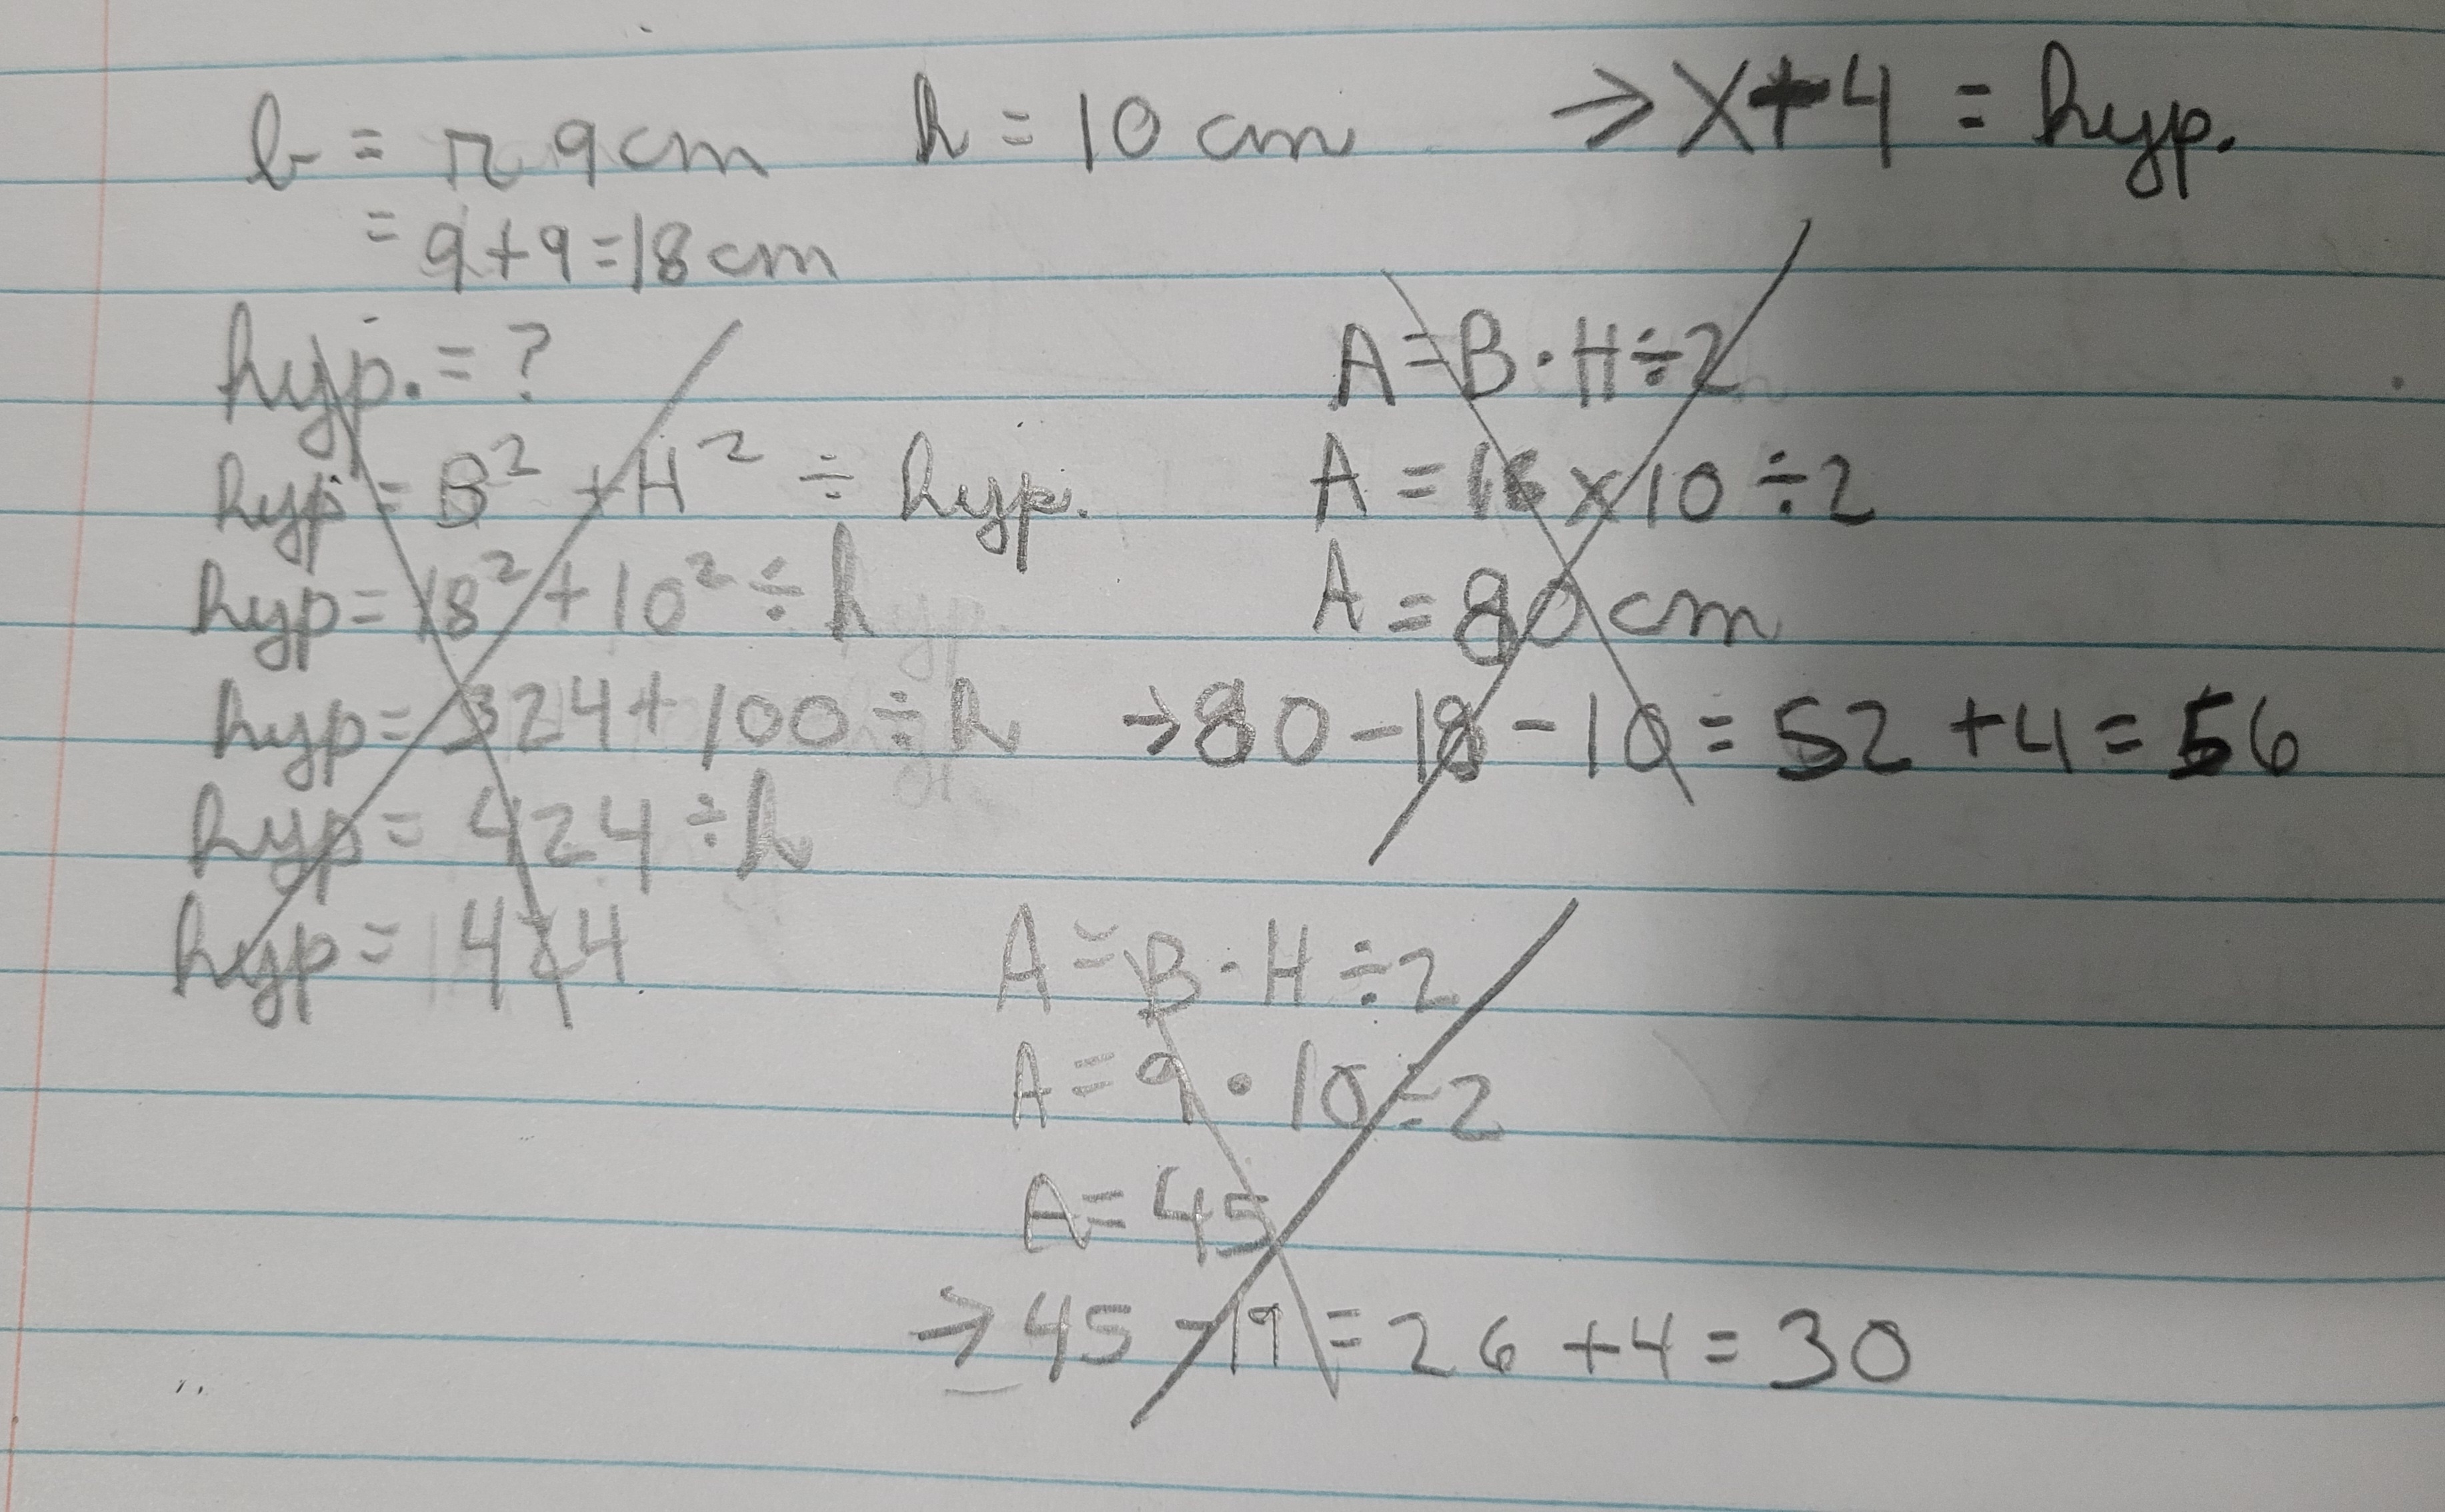 b = r 9cm h = 10 cm → x+4 = hyp.
= 9+9=18cm
hyp. = ?
hyp = B² + H² ÷ hyp.
hyp = 18² + 10² ÷ h
hyp = 324 + 100 ÷ h
hyp = 424 ÷ h
hyp = 424
A = B · H ÷ 2
A = 18 x 10 ÷ 2
A = 80 cm
→ 80 - 18 - 10 = 52 + 4 = 56
A = B · H ÷ 2
A = 9 · 10 ÷ 2
A = 45
→ 45 - 19 = 26 + 4 = 30